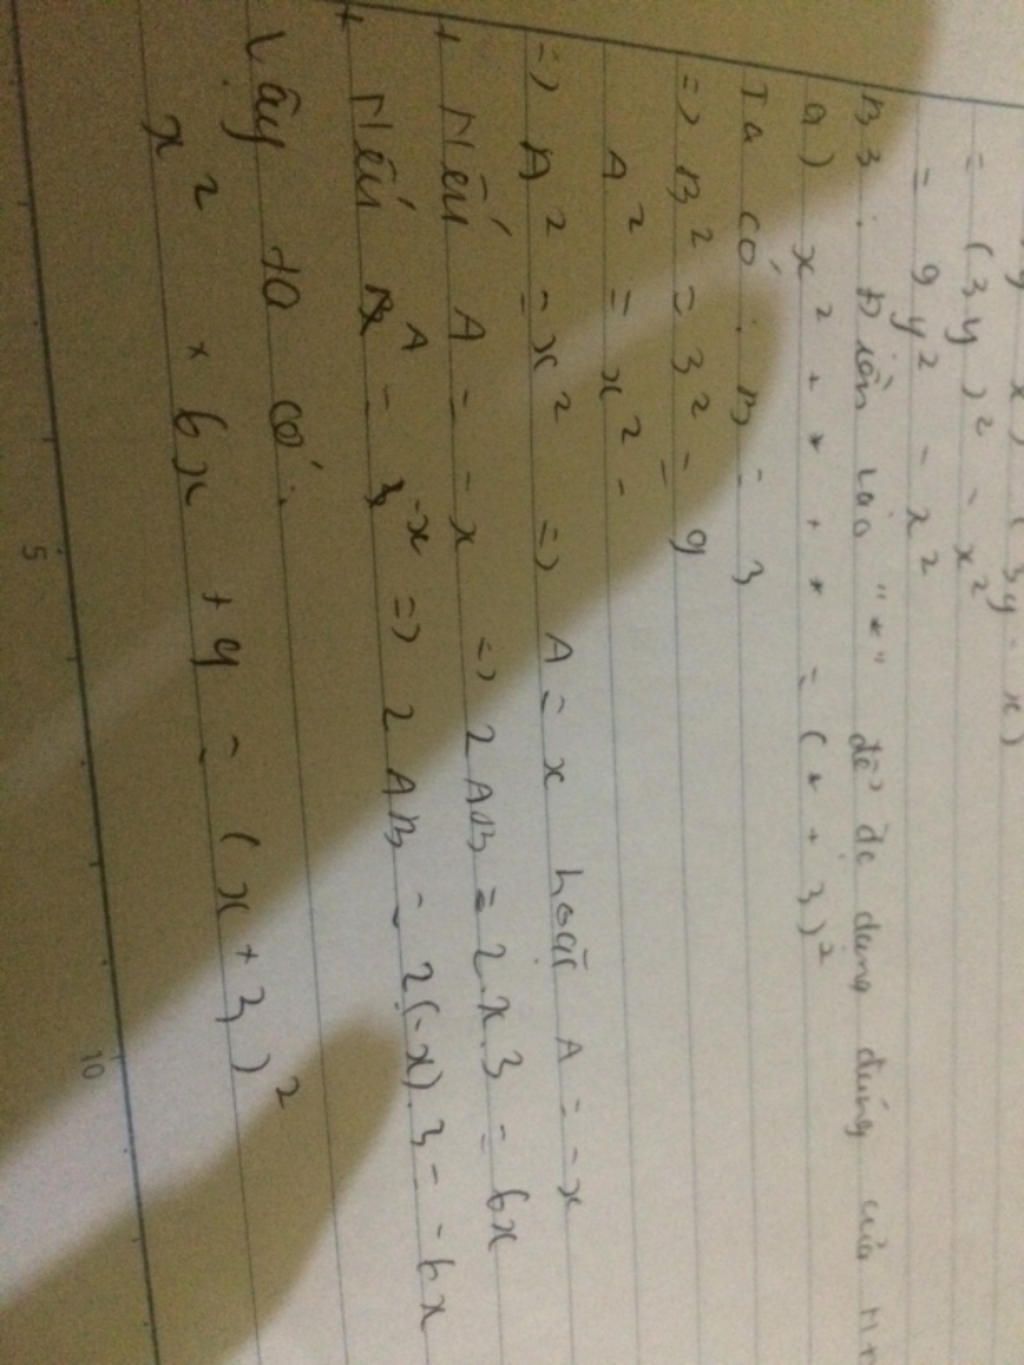 y x) (3y - x)
= (3y)² - x²
= 9y² - x²
B3 : Điền vào "*" để đc dạng đúng của
a) x² + * + * = (* + 3)²
Ta có : B = 3
=> B² = 3² = 9
A² = x² -
=> A² = x² => A = x hoặc A = -x
+ Nếu A = - x => 2AB = 2.x.3 = 6x
+ Nếu A = -x => 2AB = 2(-x).3 = -6x
Vậy ta có :
x² + 6x + 9 = (x + 3)²
5
10